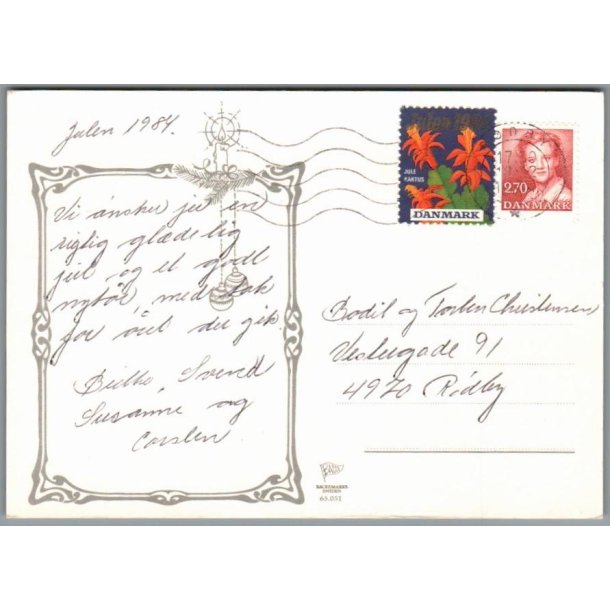 Julen 1984.
Vi ønsker jer en
rigtig glædelig
jul og et godt
nytår, med tak
for året der gik
Svend
Susanne og
Carsten
Julen 19
JULE
KAKTUS
DANMARK
2.70
DANMARK
Bodil og Torben Christensen
Vestergade 91
4970 Rødby
BACKSMARKE
SWEDEN
65.051